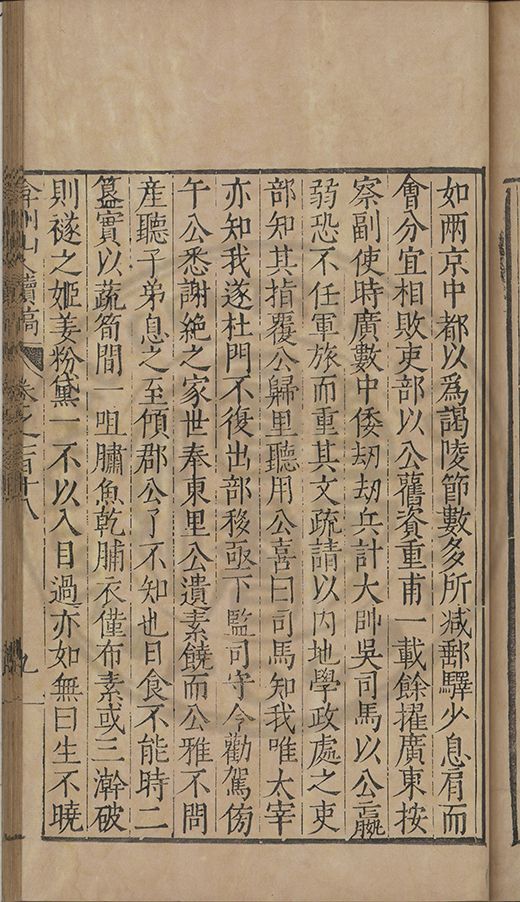 如兩京中都以爲謁陵節數多所減郵驛少息肩而
會分宜相敗吏部以公舊資重甫一載餘擢廣東按
察副使時廣數中倭刧刧兵計大帥吳司馬以公羸
弱恐不任軍旅而重其文疏請以内地學政處之吏
部知其指覆公歸里聽用公喜曰司馬知我唯太宰
亦知我遂杜門不復出部移亟下監司守令勸駕傍
午公悉謝絶之家世奉東里公遺素饒而公雅不問
産聽子弟息之至傾郡公了不知也日食不能時二
簋實以蔬筍間一咀腒魚乾脯衣僅布素或三澣破
則襚之姬姜粉黛一不以入目過亦如無曰生不曉
弇州山人續稿 卷之一百十八 九